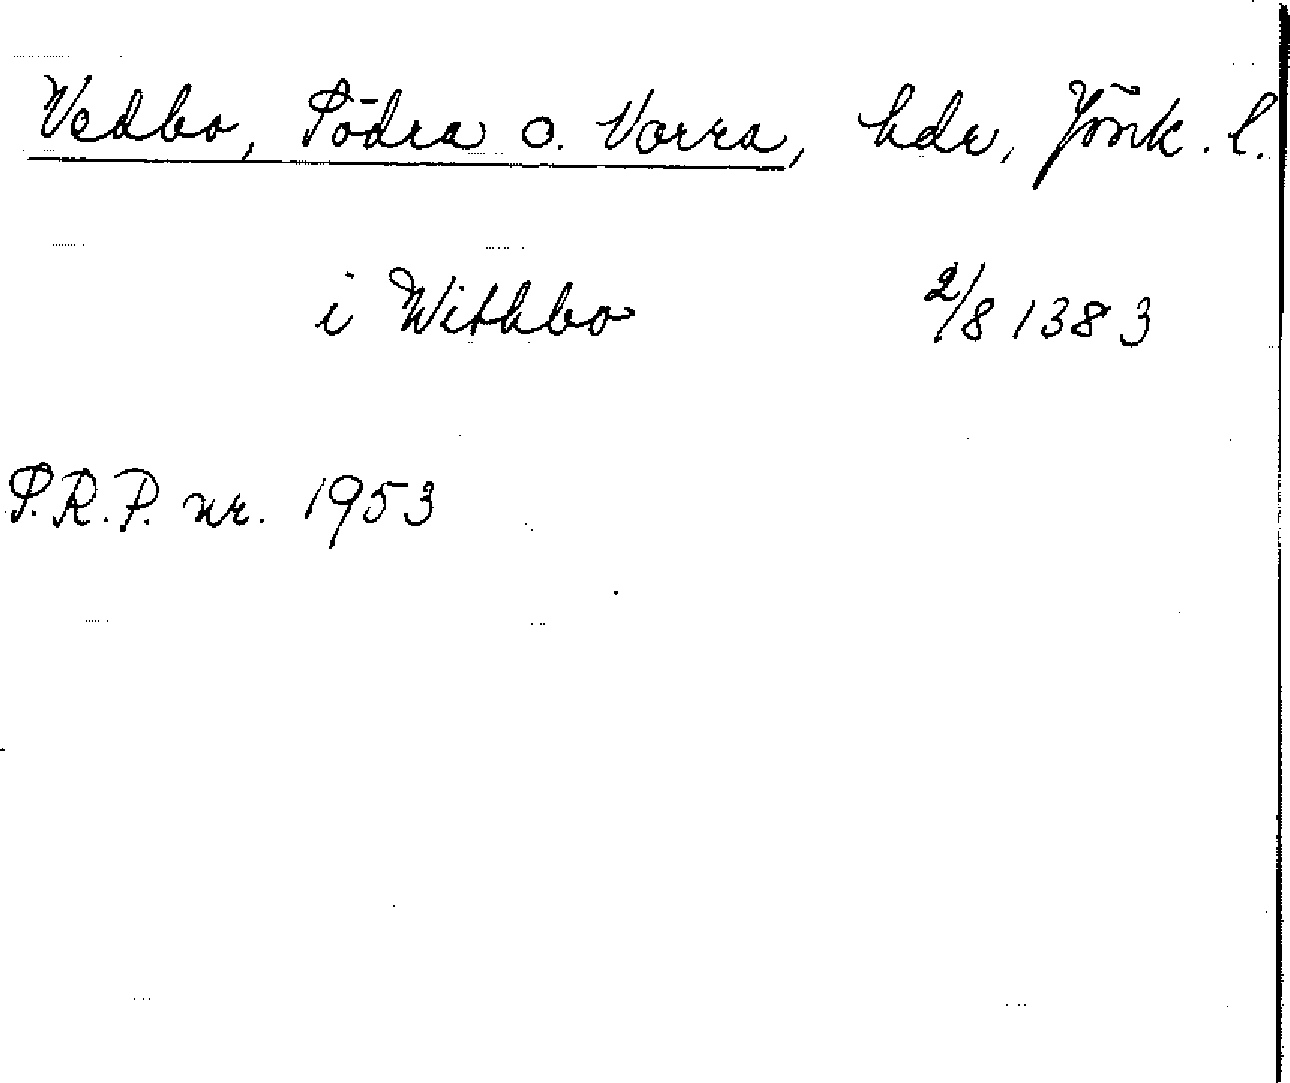 Vedbo, Södra o. Norra, hdr, Jönk. l.
i Withbo 2/8 1383
S.R.P. nr. 1953